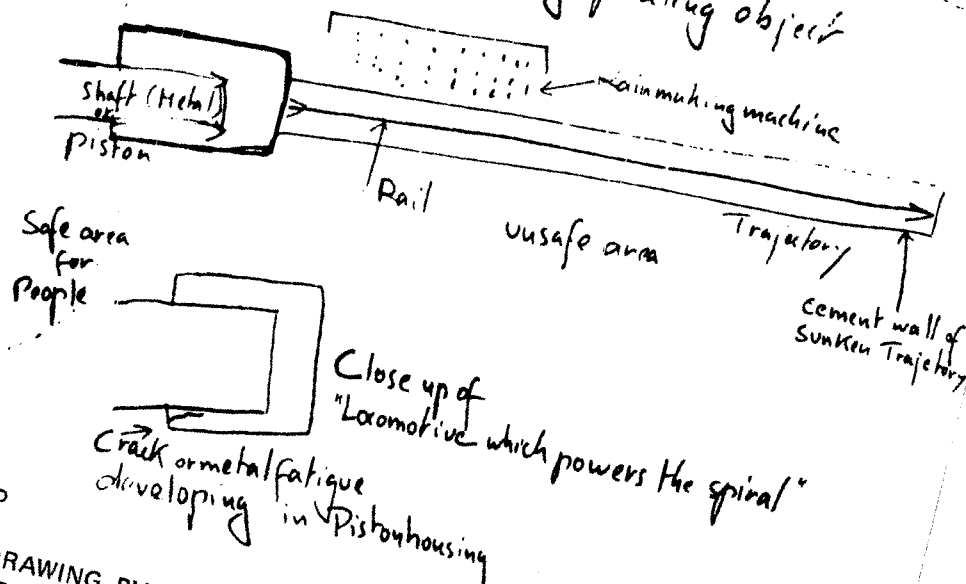 object
Rainmaking machine
Shaft (Metal)
Piston
Rail
Safe area
for
People
unsafe area
Trajectory
cement wall of
sunken Trajectory
Close up of
"Locomotive which powers the spiral"
Crack or metal fatigue
developing in Pistonhousing